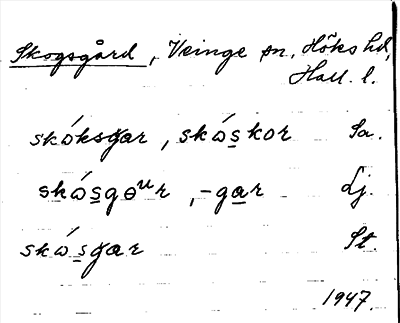 Skogsgård, Veinge sn, Höks hd,
Hall. l.
skóksgar, skóskor Sa.
skósgoᵘr, -gar Lj.
skósgar St.
1947.